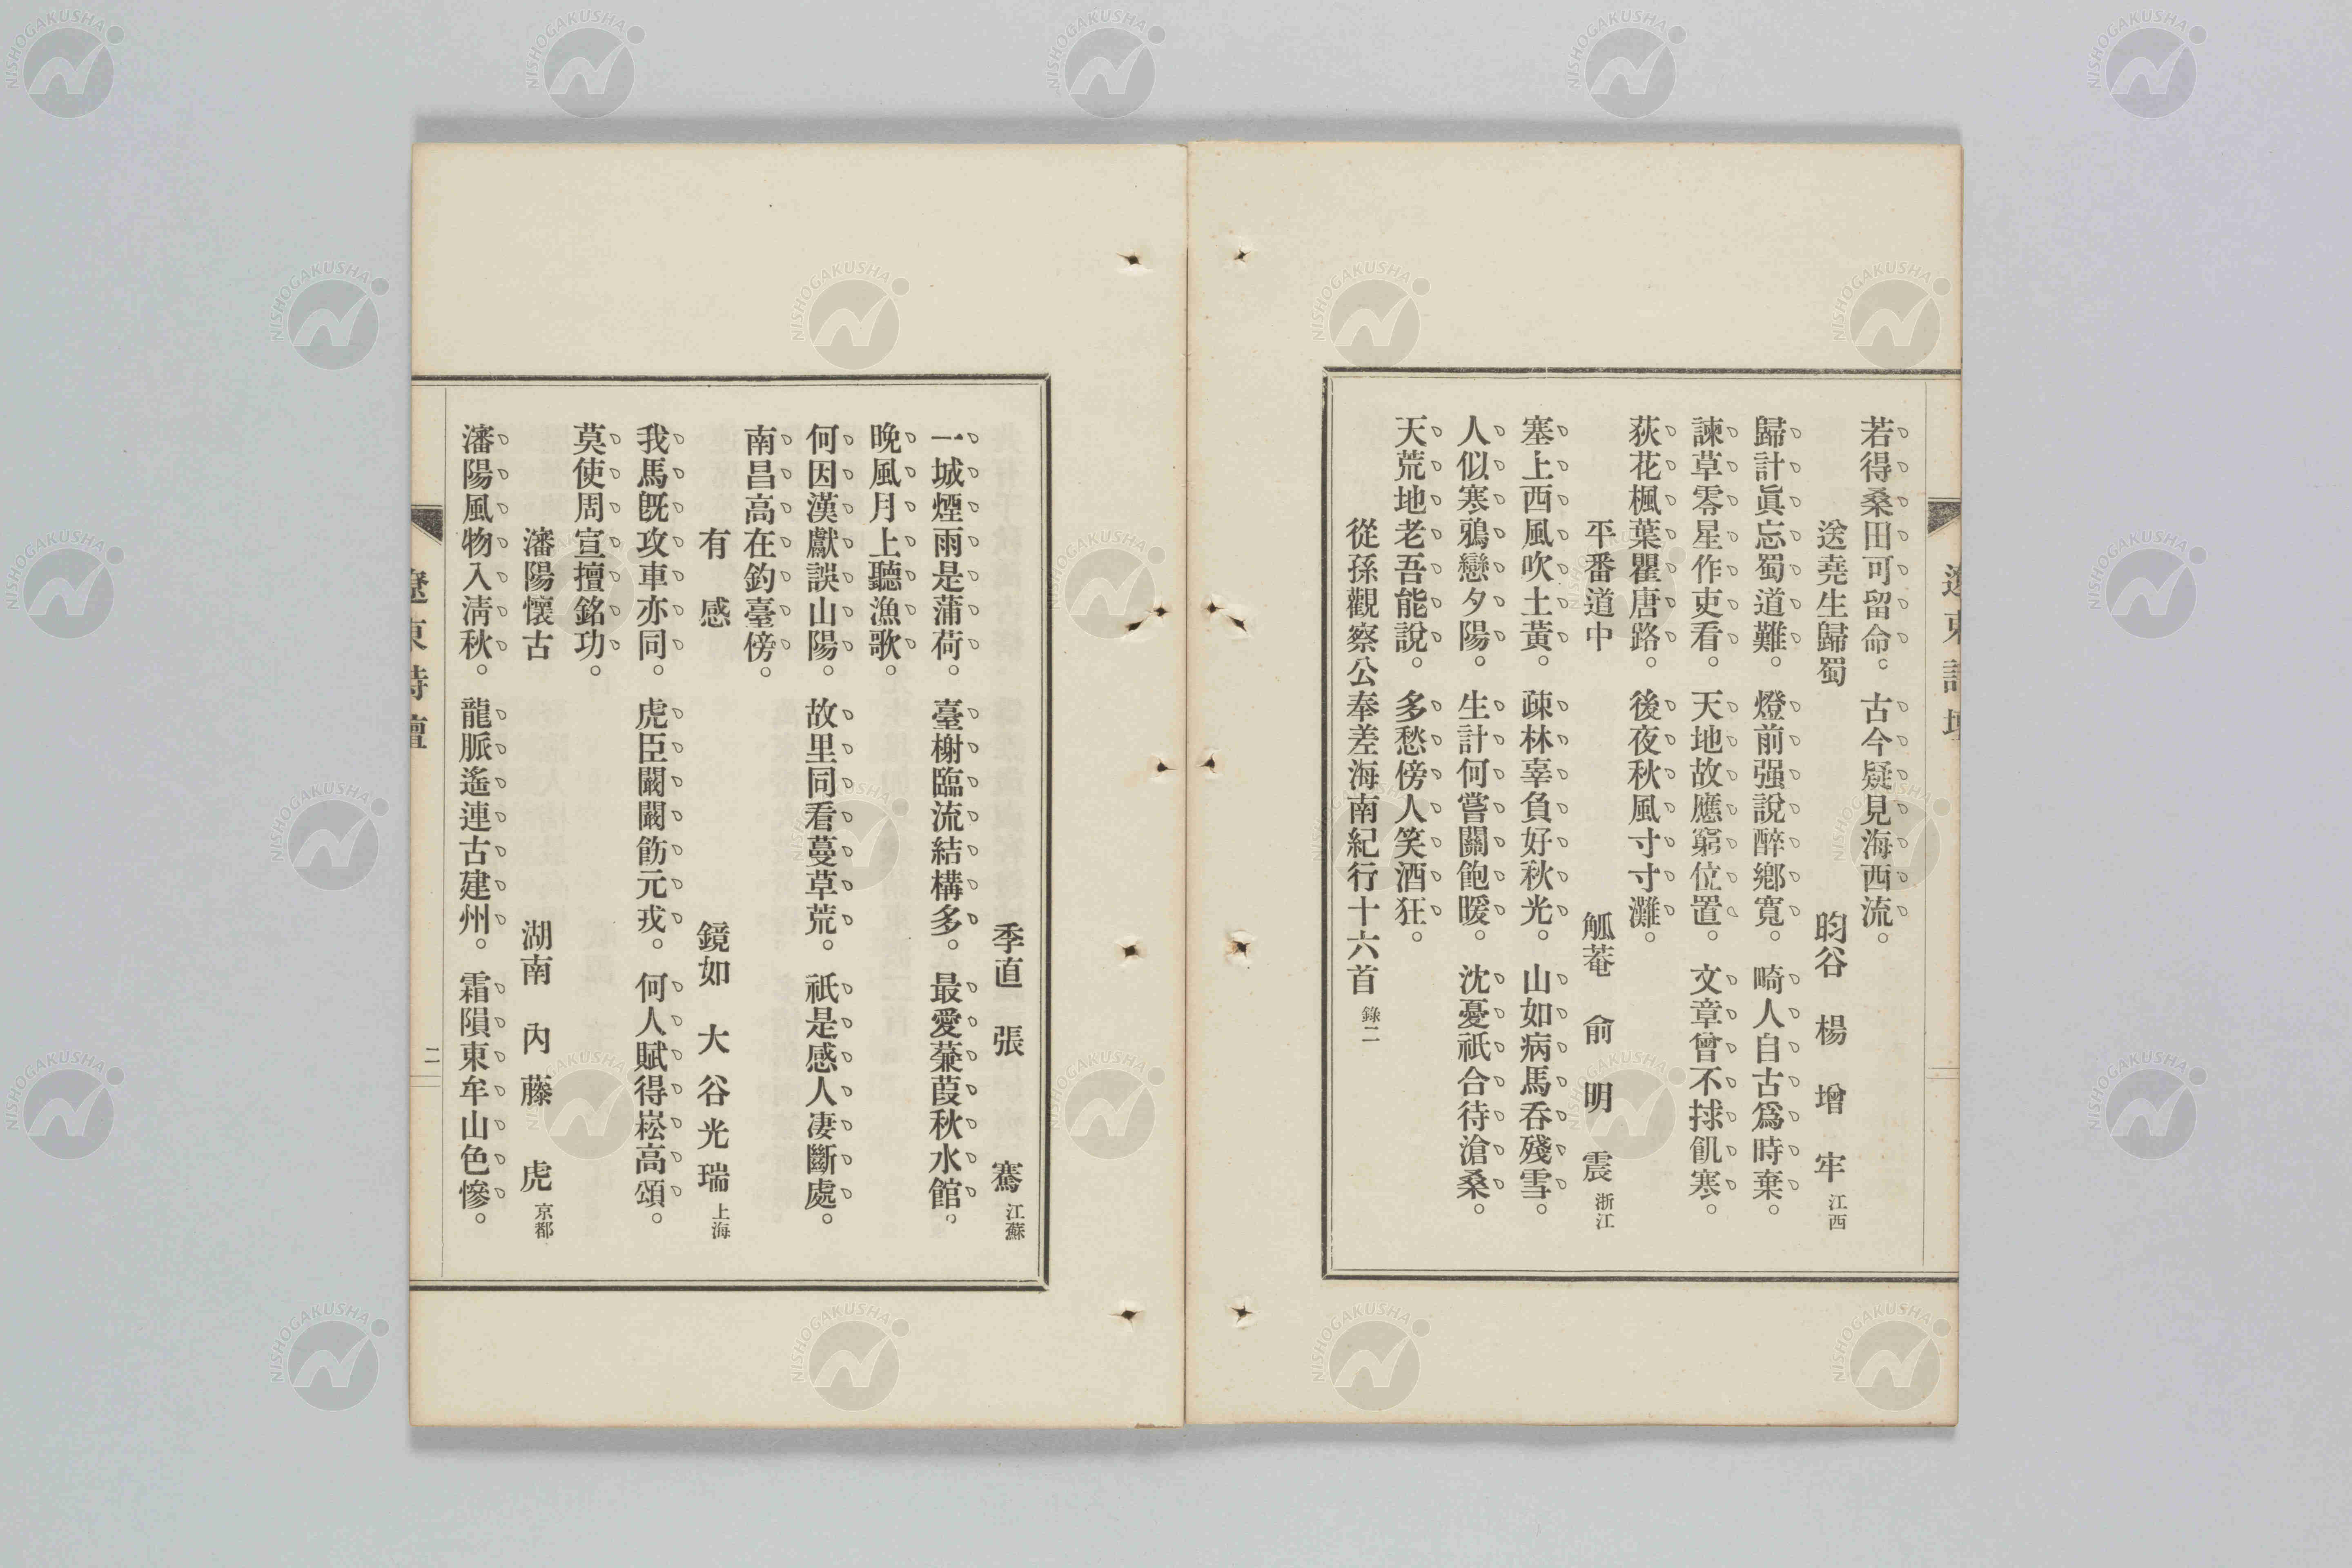 若得桑田可留命。古今疑見海西流。
送堯生歸蜀
昀谷 楊增牢 江西
歸計眞忘蜀道難。燈前强說醉鄕寬。畸人自古爲時棄。
諫草零星作吏看。天地故應窮位置。文章曾不捄飢寒。
荻花楓葉瞿唐路。後夜秋風寸寸灘。
平番道中
觚菴 俞明震 浙江
塞上西風吹土黃。疎林辜負好秋光。山如病馬吞殘雪。
人似寒鴉戀夕陽。生計何嘗關飽暖。沈憂祇合待滄桑。
天荒地老吾能說。多愁傍人笑酒狂。
從孫觀察公奉差海南紀行十六首 錄二
遼東詩壇
季直 張 騫 江蘇
一城煙雨是蒲荷。臺榭臨流結構多。最愛蒹葭秋水館。
晚風月上聽漁歌。
何因漢獻誤山陽。故里同看蔓草荒。祇是感人凄斷處。
南昌高在釣臺傍。
有感
鏡如 大谷光瑞 上海
我馬旣攻車亦同。虎臣闞闞飭元戎。何人賦得崧高頌。
莫使周宣擅銘功。
瀋陽懷古
湖南 內藤虎 京都
瀋陽風物入淸秋。龍脈遙連古建州。霜隕東牟山色慘。
遼東詩壇
二
NISHOGAKUSHA